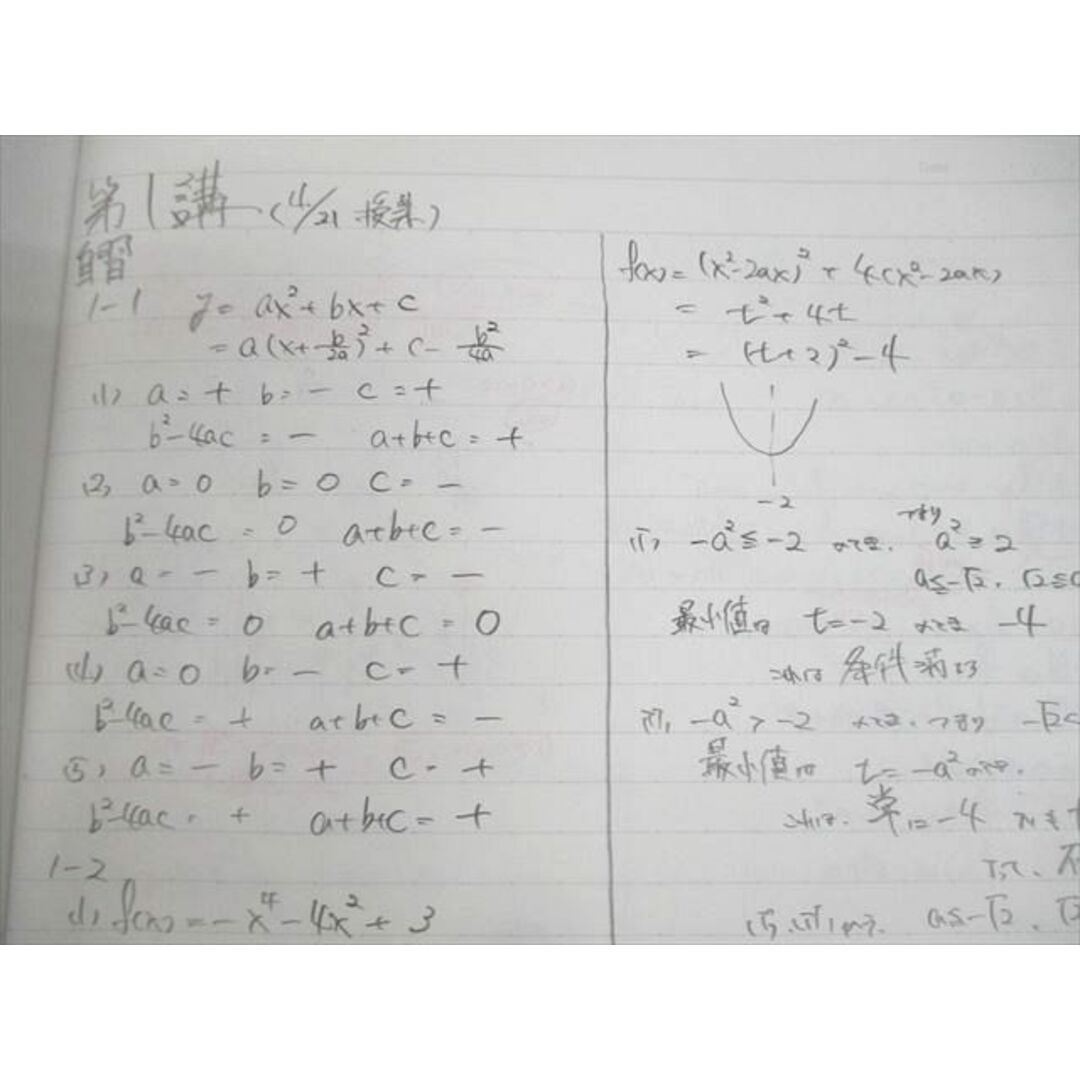 第1講 (4/21 授業)
自習
1-1 y = ax²+bx+c
= a(x+b/2a)²+c-b²/4a
(1) a=+ b=- c=+
b²-4ac=- a+b+c=+
(2) a=0 b=0 c=-
b²-4ac=0 a+b+c=-
(3) a=- b=+ c=-
b²-4ac=0 a+b+c=0
(4) a=0 b=- c=+
b²-4ac=+ a+b+c=-
(5) a=- b=+ c=+
b²-4ac=+ a+b+c=+
1-2
(1) f(x)=-x⁴-4x²+3
f(x)=(x²-2ax)²+4(x²-2ax)
= t²+4t
= (t+2)²-4
-2
(i) -a²≦-2 のとき、つまり a²≧2
a≦-√2, √2≦a
最小値は t=-2 のとき -4
これは 条件満たす
(ii) -a²>-2 のとき、つまり -√2<
最小値は t=-a² のとき、
これは、常に-4
(i),(ii)より、a≦-√2、√2